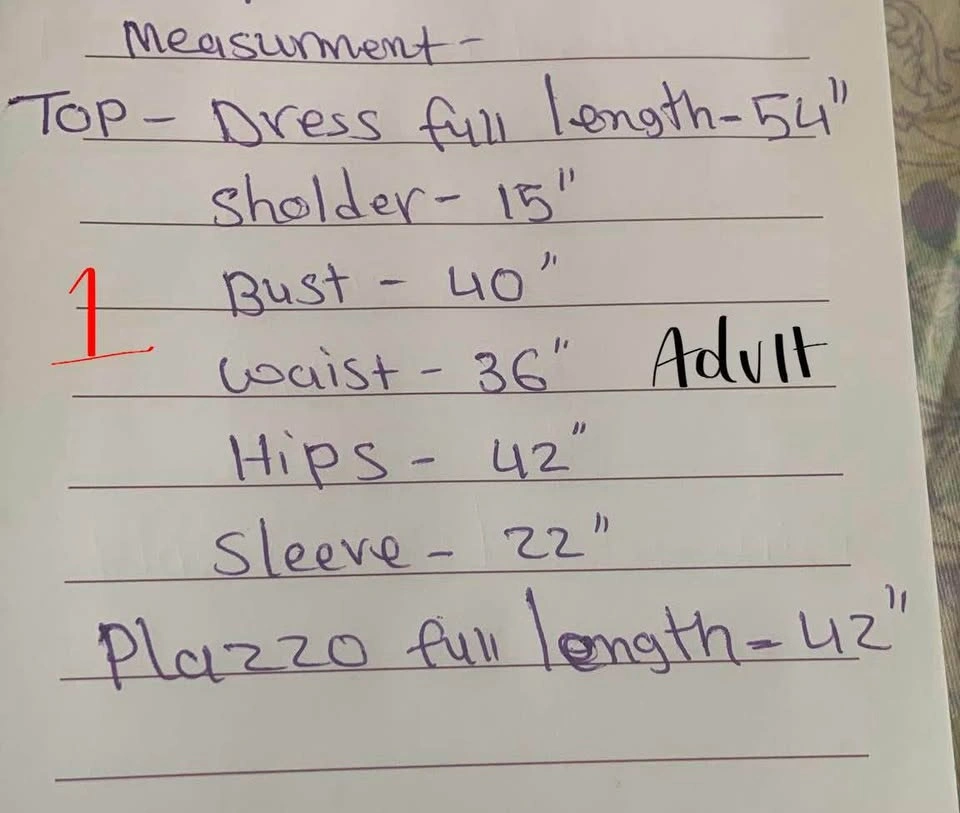 Measurment -
TOP - Dress full length - 54"
Sholder - 15"
1
Bust - 40"
Waist - 36" Adult
Hips - 42"
Sleeve - 22"
Plazzo full length - 42"